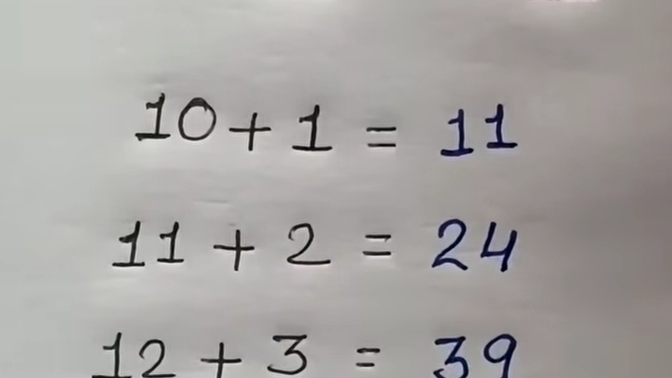 10 + 1 = 11
11 + 2 = 24
12 + 3 = 39